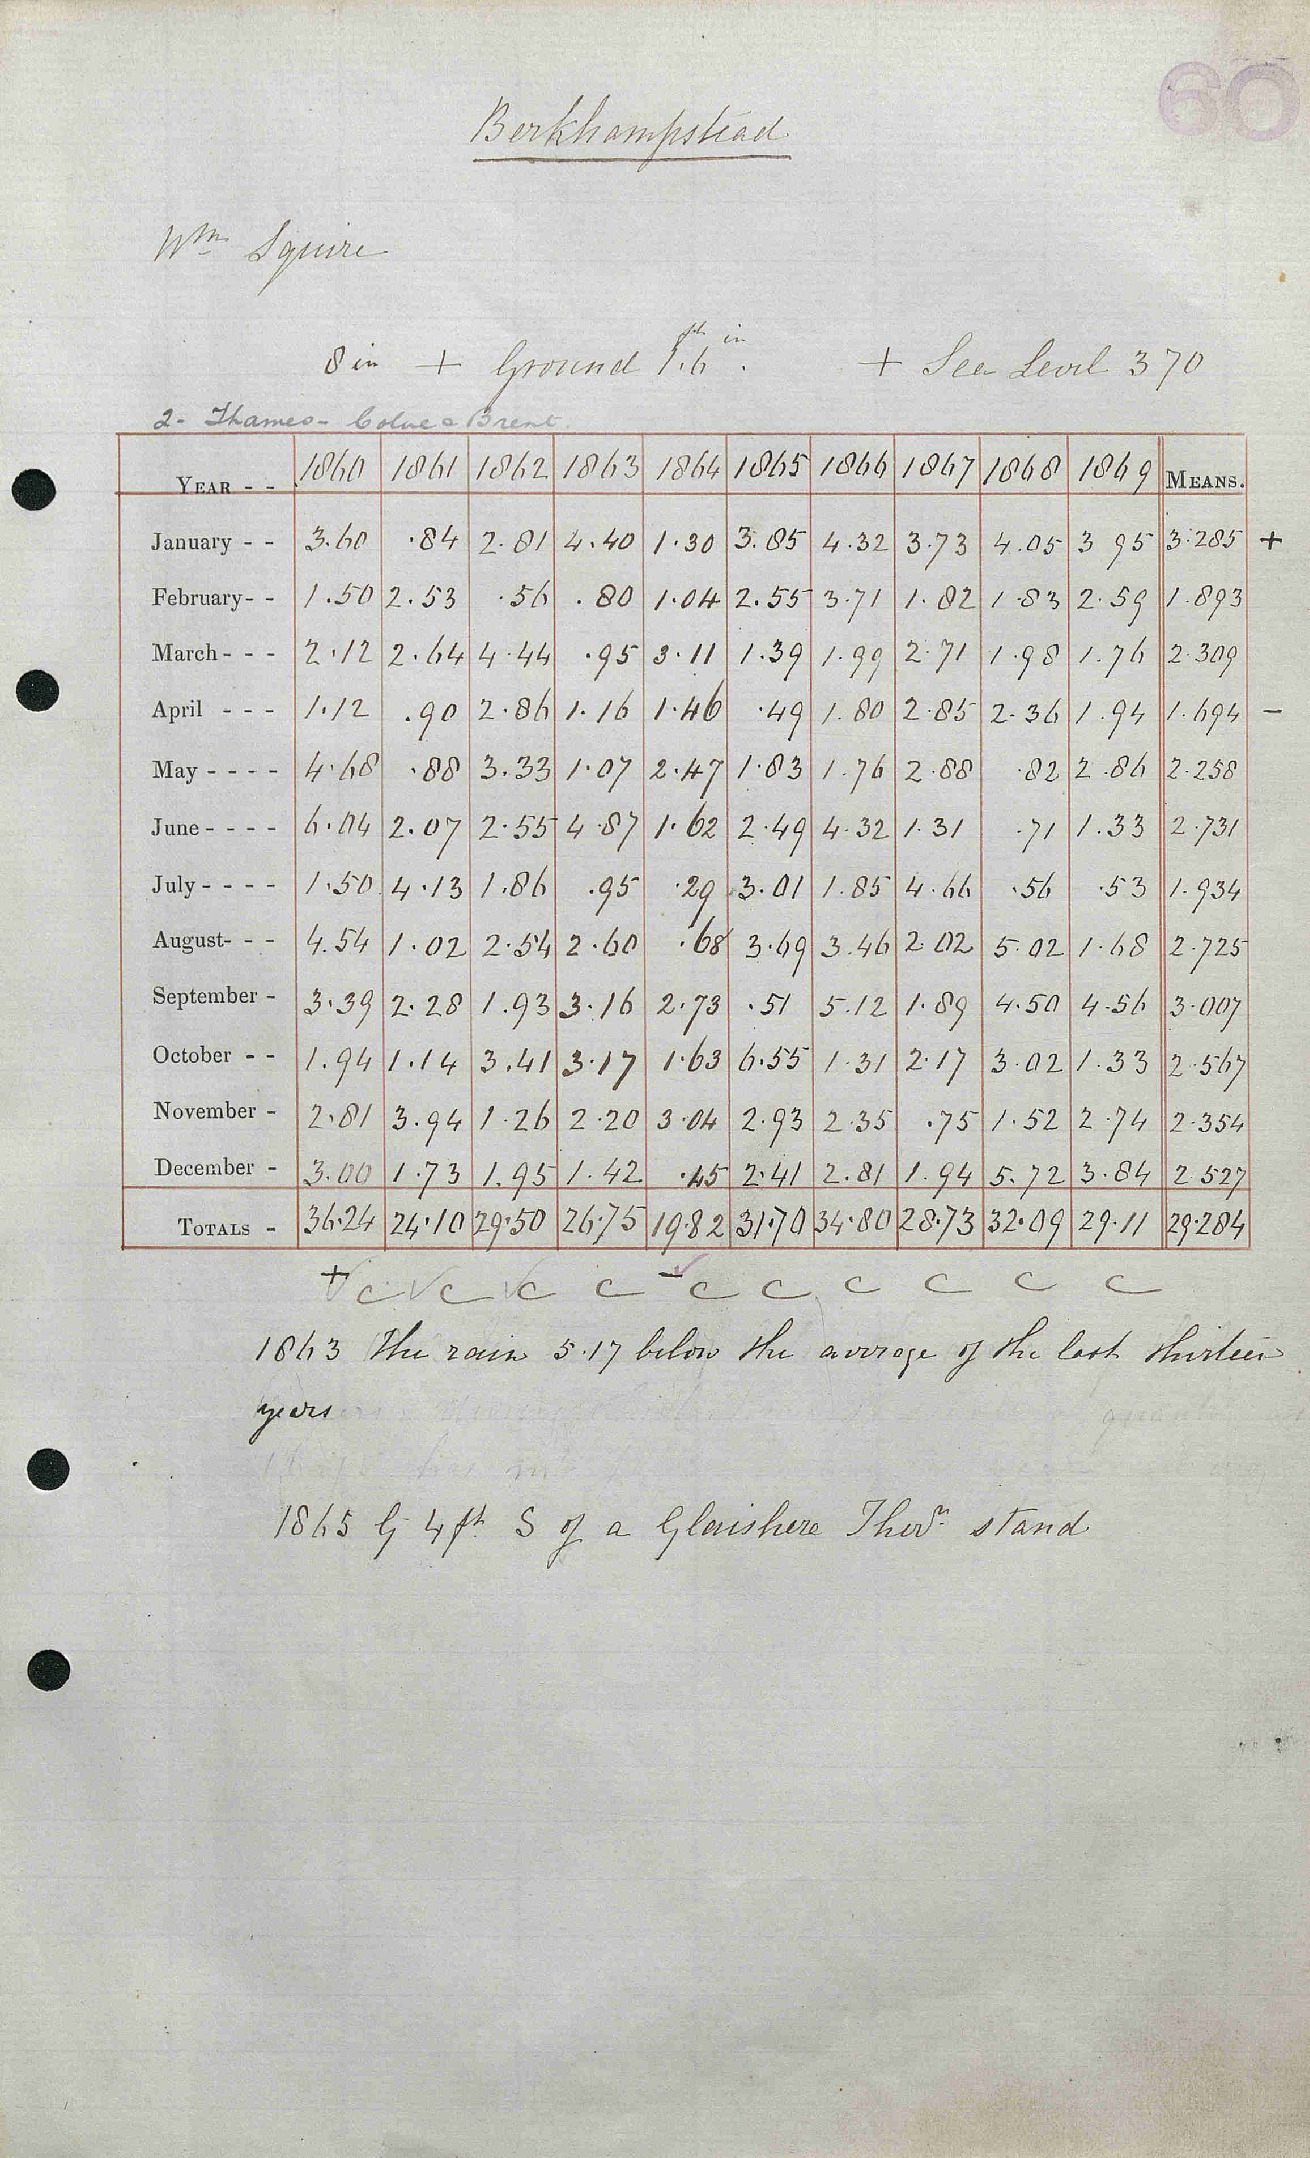 60
Berkhampstead
Wm Squire
8 in + Ground 1ft.6in. + Sea Level 370
2- Thames- Colne & Brent.
YEAR - - 1860 1861 1862 1863 1864 1865 1866 1867 1868 1869 MEANS.
January - - 3.60 .84 2.81 4.40 1.30 3.85 4.32 3.73 4.05 3 95 3.285 +
February - - 1.50 2.53 .56 .80 1.04 2.55 3.71 1.82 1.83 2.59 1.893
March - - - 2.12 2.64 4.44 .95 3.11 1.39 1.99 2.71 1.98 1.76 2.309
April - - - 1.12 .90 2.86 1.16 1.46 .49 1.80 2.85 2.36 1.94 1.694 -
May - - - - 4.68 .88 3.33 1.07 2.47 1.83 1.76 2.88 .82 2.86 2.258
June - - - - 6.04 2.07 2.55 4.87 1.62 2.49 4.32 1.31 .71 1.33 2.731
July - - - - 1.50 4.13 1.86 .95 .29 3.01 1.85 4.66 .56 .53 1.934
August - - - 4.54 1.02 2.54 2.60 .68 3.69 3.46 2.02 5.02 1.68 2.725
September - 3.39 2.28 1.93 3.16 2.73 .51 5.12 1.89 4.50 4.56 3.007
October - - 1.94 1.14 3.41 3.17 1.63 6.55 1.31 2.17 3.02 1.33 2.567
November - 2.81 3.94 1.26 2.20 3.04 2.93 2.35 .75 1.52 2.74 2.354
December - 3.00 1.73 1.95 1.42 .45 2.41 2.81 1.94 5.72 3.84 2.527
TOTALS - 36.24 24.10 29.50 26.75 19.82 31.70 34.80 28.73 32.09 29.11 29.284
+ c c c c - c c c c c c
1863 The rain 5.17 below the average of the last thirteen
years
1865 G 4ft S of a Glaishere Therr stand